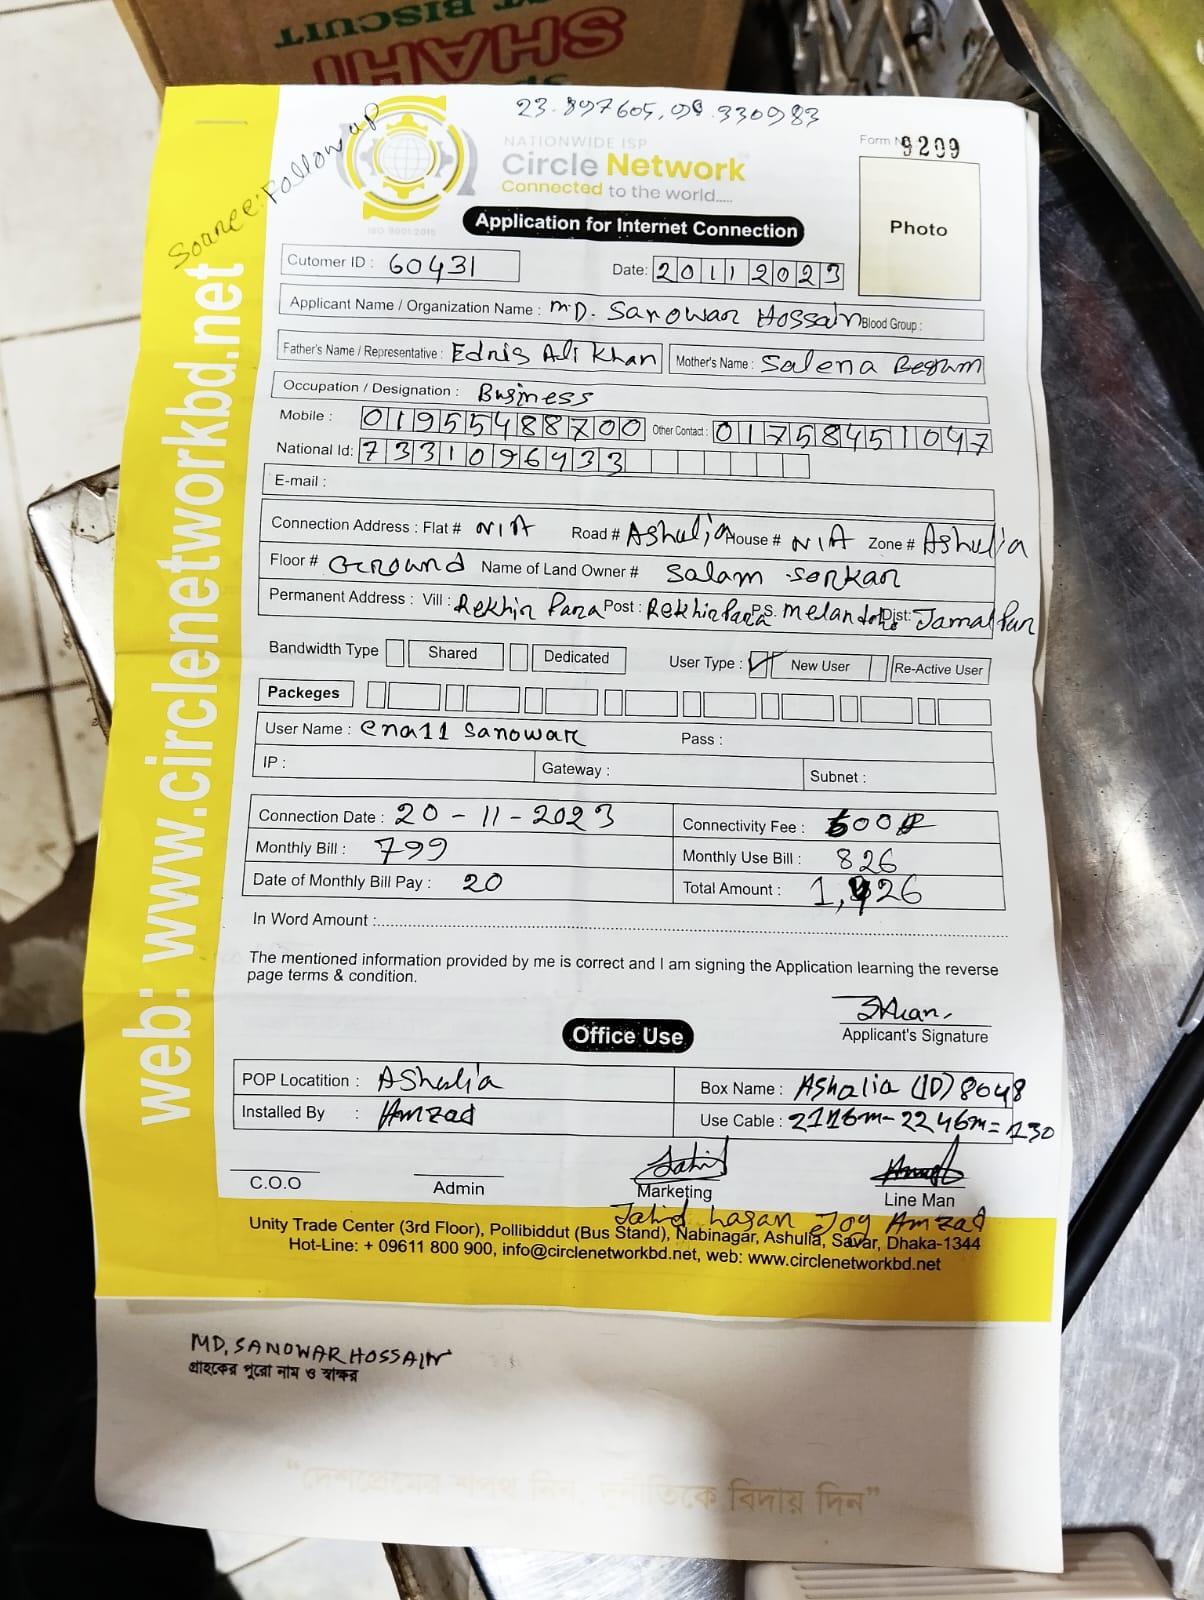 SHAHI
BISCUIT
23.897605, 90.330983
Source: Follow up
NATIONWIDE ISP
Circle Network
Connected to the world.....
ISO 9001:2015
Form N 9209
Photo
Application for Internet Connection
Cutomer ID : 60431
Date: 20112023
Applicant Name / Organization Name : MD. Sanowar Hossain Blood Group :
Father's Name / Representative : Edris Ali Khan Mother's Name : Salena Begum
Occupation / Designation : Business
Mobile : 01955488700 Other Contact : 01758451047
National Id: 7331096433
E-mail :
Connection Address : Flat # N/A Road # Ashulia House # N/A Zone # Ashulia
Floor # Ground Name of Land Owner # Salam Sorkar
Permanent Address : Vill : Rekhir Para Post : Rekhir Para P.S. Melandoho Dist: Jamalpur
Bandwidth Type Shared Dedicated User Type : ✓ New User Re-Active User
Packeges
User Name : ena11 sanowar Pass :
IP : Gateway : Subnet :
Connection Date : 20 - 11 - 2023 Connectivity Fee :
Monthly Bill : 799 Monthly Use Bill : 826
Date of Monthly Bill Pay : 20 Total Amount :
In Word Amount :
The mentioned information provided by me is correct and I am signing the Application learning the reverse
page terms & condition.
Applicant's Signature
Office Use
POP Locatition : Ashulia Box Name : Ashalia (ID) 8048
Installed By : Amzad Use Cable : 2116m - 2246m = 130
C.O.O Admin Marketing Line Man
Jahid hasan Joy Amzad
Unity Trade Center (3rd Floor), Pollibiddut (Bus Stand), Nabinagar, Ashulia, Savar, Dhaka-1344
Hot-Line: + 09611 800 900, info@circlenetworkbd.net, web: www.circlenetworkbd.net
web: www.circlenetworkbd.net
MD. SANOWAR HOSSAIN
গ্রাহকের পুরো নাম ও স্বাক্ষর
“দেশপ্রেমের শপথ নিন, দুর্নীতিকে বিদায় দিন”